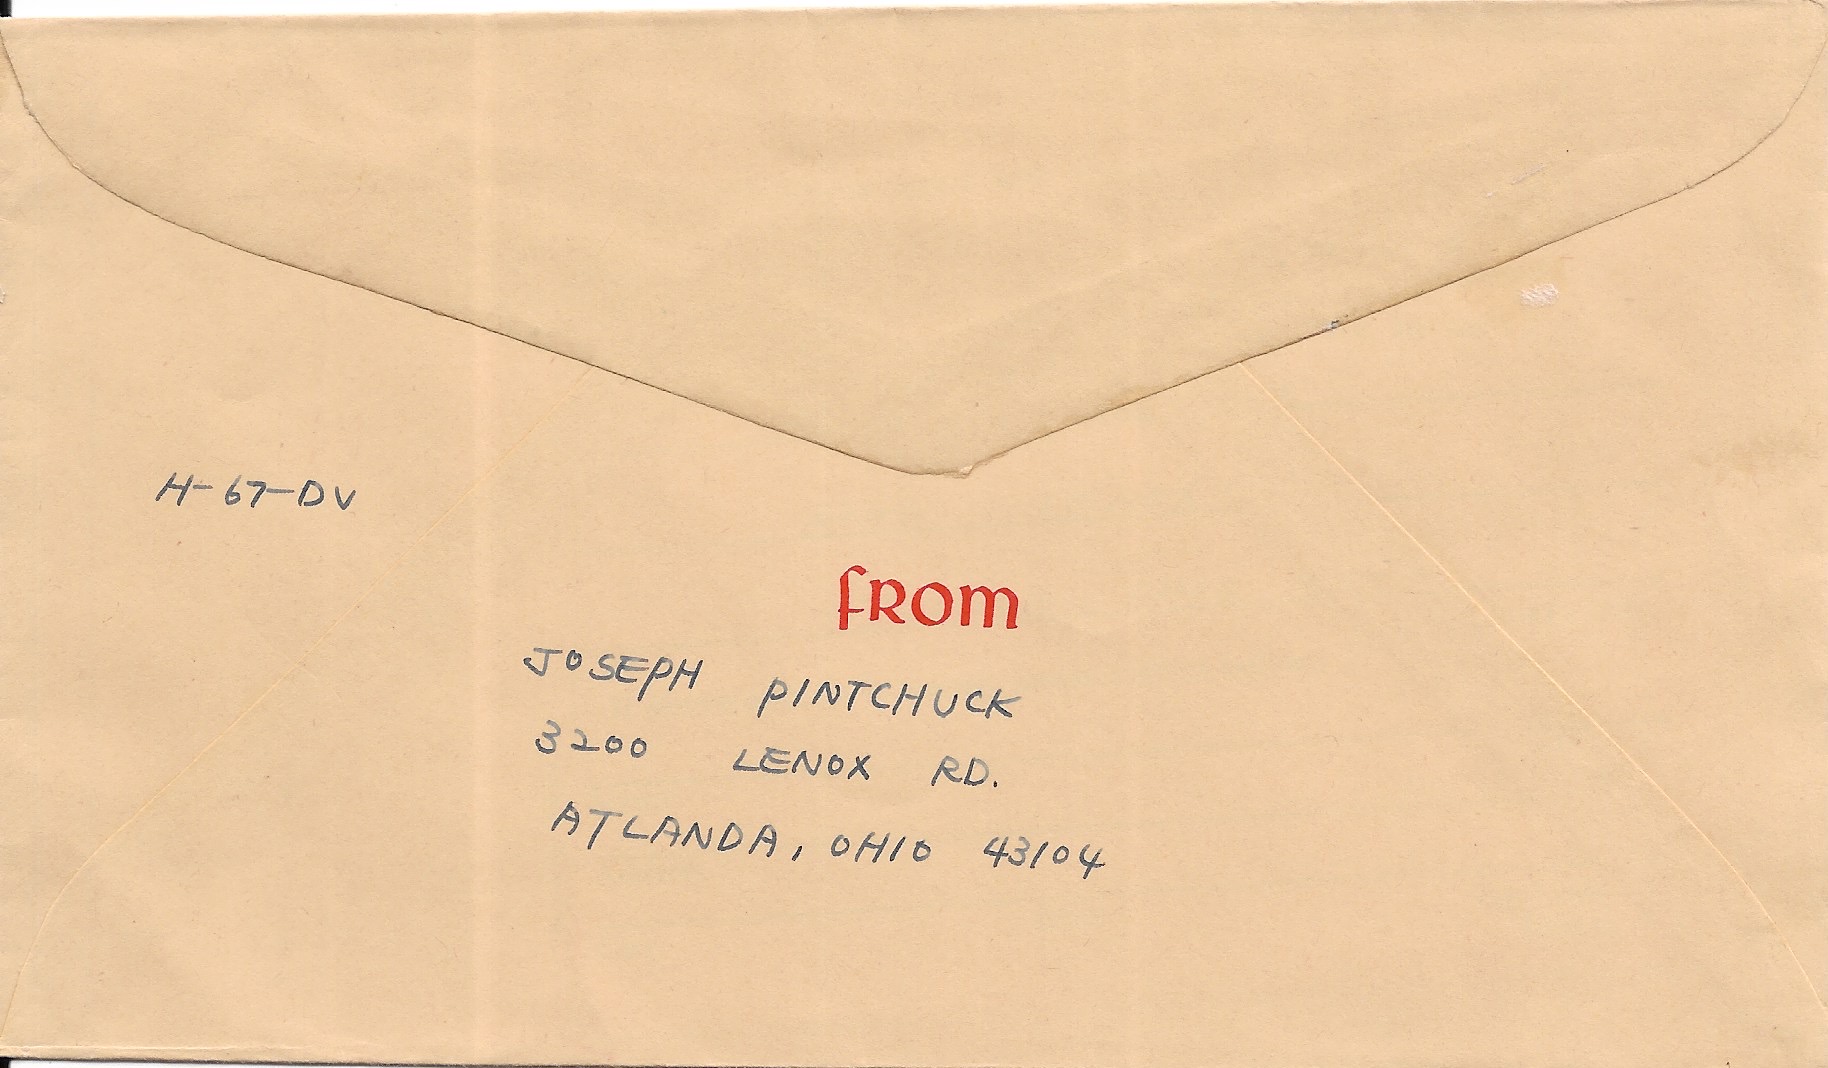 H-67-DV
FROM
JOSEPH PINTCHUCK
3200 LENOX RD.
ATLANDA, OHIO 43104